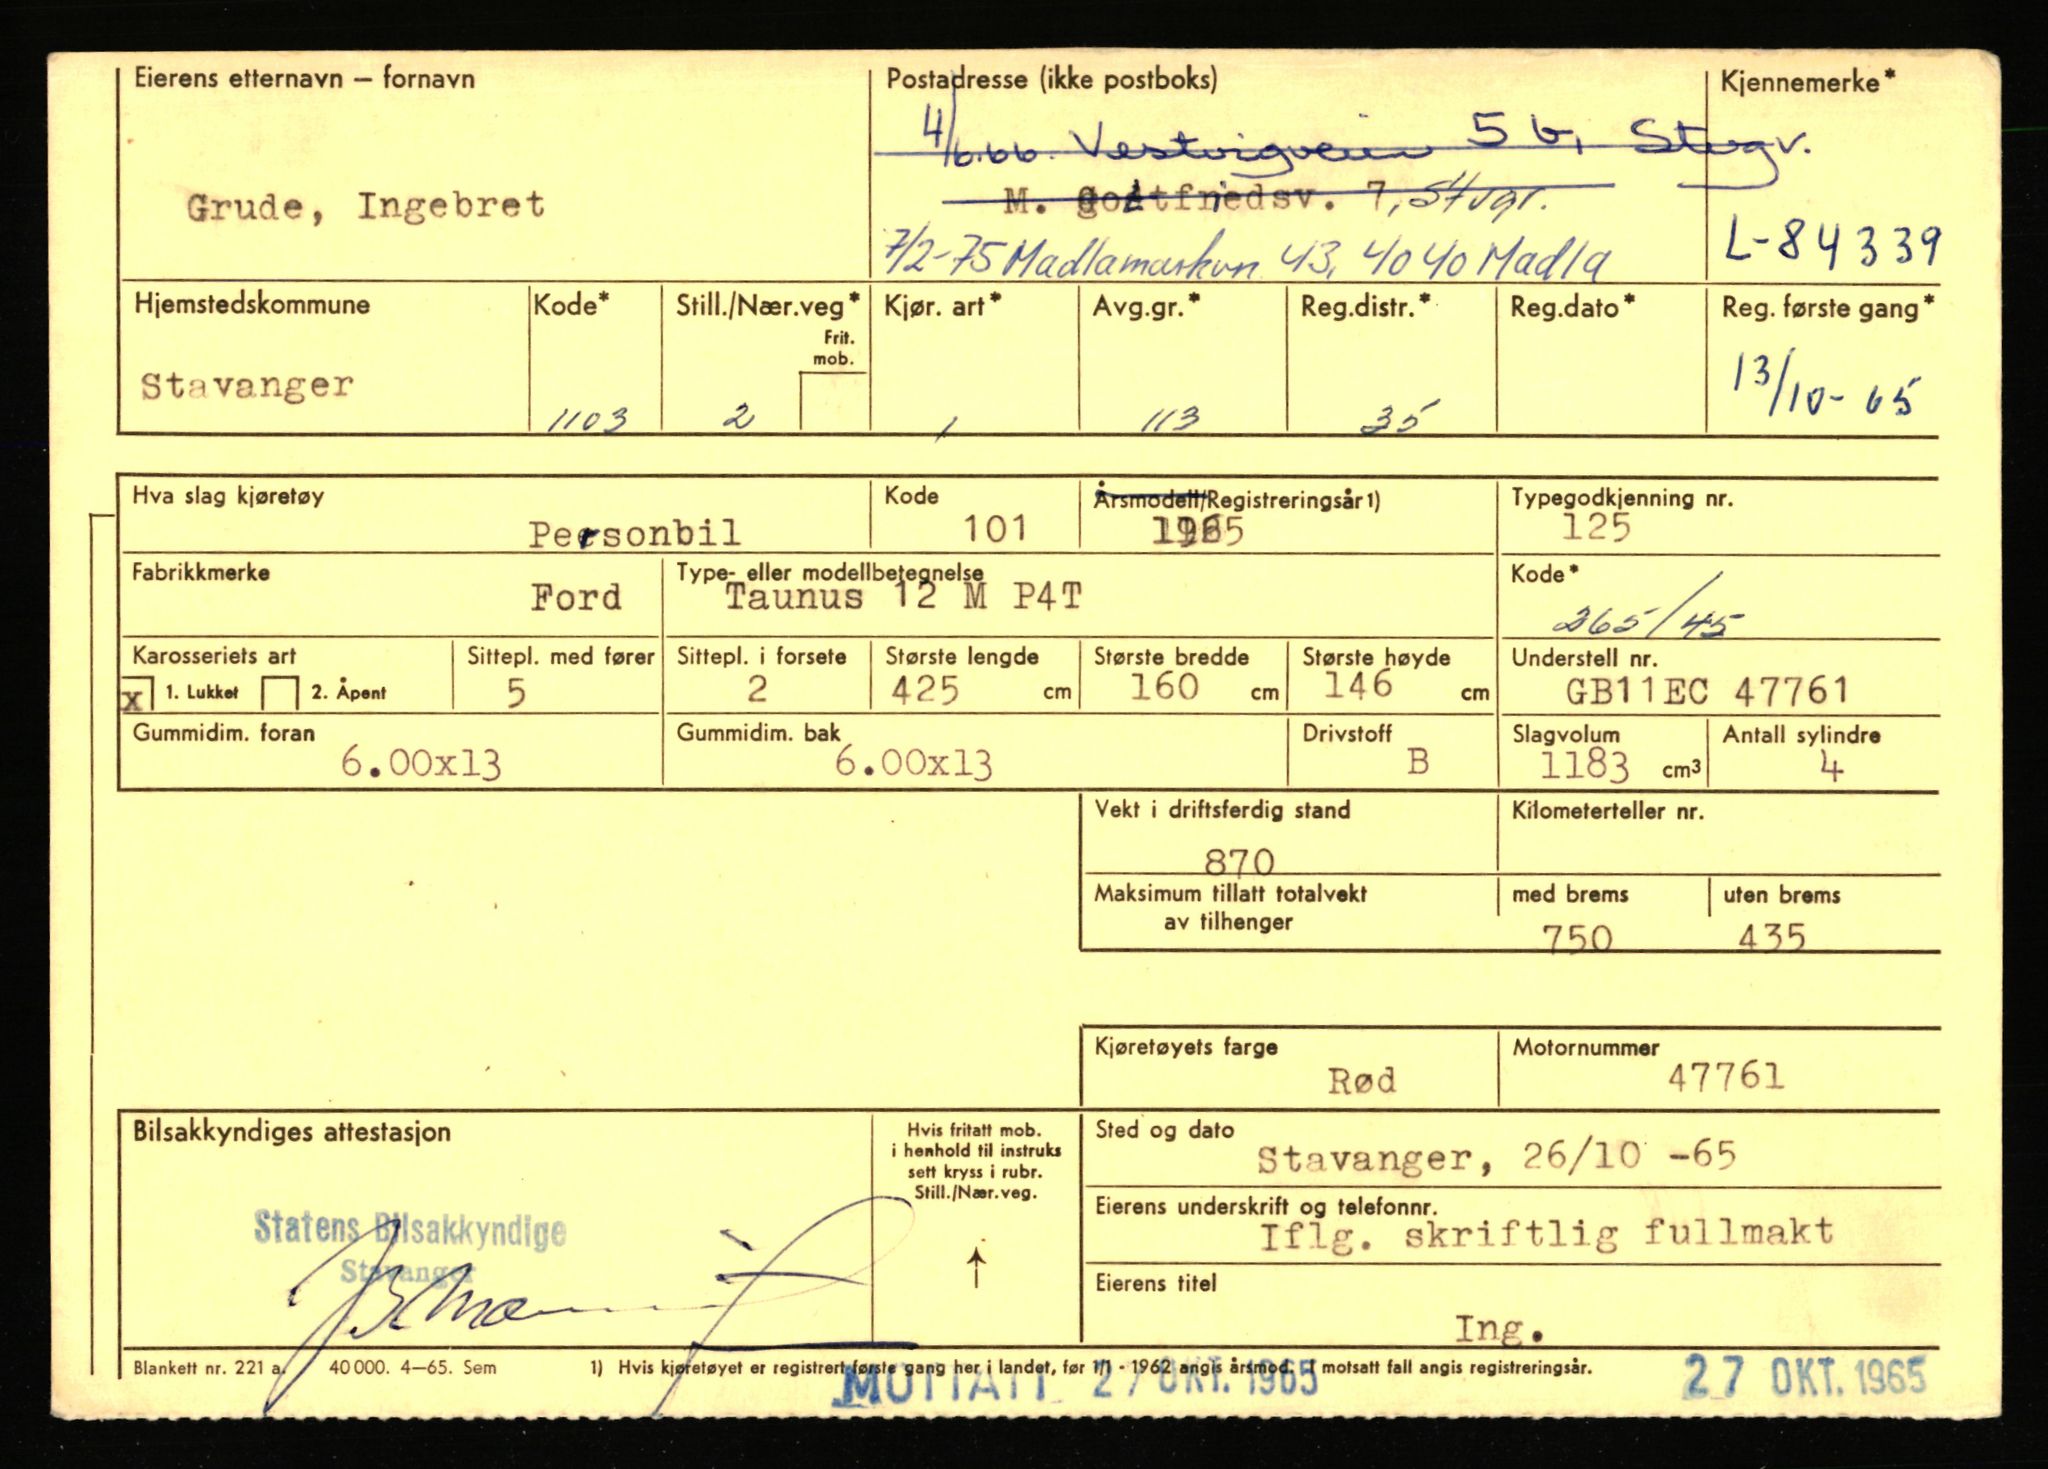 Eierens etternavn – fornavn
Postadresse (ikke postboks)
Kjennemerke*
4/6.66. Vestvigveien 5 b, Stvgr.
Grude, Ingebret
M. gotfriedsv. 7, Stvgr.
L-84339
7/2-75 Madlamarkvn 43, 4040 Madla
Hjemstedskommune Kode* Still./Nær.veg* Kjør. art* Avg.gr.* Reg.distr.* Reg.dato* Reg. første gang*
Frit.
mob.
Stavanger 1103 2 1 113 35 13/10-65
Hva slag kjøretøy Kode Årsmodell/Registreringsår 1) Typegodkjenning nr.
Personbil 101 1965 125
Fabrikkmerke Type- eller modellbetegnelse Kode*
Ford Taunus 12 M P4T 265/45
Karosseriets art Sittepl. med fører Sittepl. i forsete Største lengde Største bredde Største høyde Understell nr.
x 1. Lukket 2. Åpent 5 2 425 cm 160 cm 146 cm GB11EC 47761
Gummidim. foran Gummidim. bak Drivstoff Slagvolum Antall sylindre
6.00x13 6.00x13 B 1183 cm³ 4
Vekt i driftsferdig stand Kilometerteller nr.
870
Maksimum tillatt totalvekt med brems uten brems
av tilhenger
750 435
Kjøretøyets farge Motornummer
Rød 47761
Bilsakkyndiges attestasjon
Hvis fritatt mob.
i henhold til instruks
sett kryss i rubr.
Still./Nær.veg.
Sted og dato
Stavanger, 26/10 -65
Eierens underskrift og telefonnr.
Iflg. skriftlig fullmakt
Statens Bilsakkyndige
Stavanger
Eierens titel
Ing.
Blankett nr. 221 a. 40 000. 4–65. Sem 1) Hvis kjøretøyet er registrert første gang her i landet, før 1/1 - 1962 angis årsmod. I motsatt fall angis registreringsår.
MOTTATT 27 OKT. 1965
27 OKT. 1965